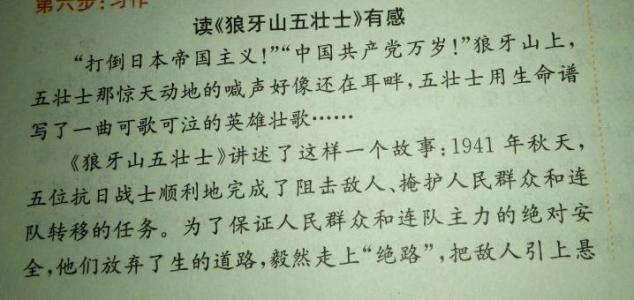 第六步:习作
读《狼牙山五壮士》有感
“打倒日本帝国主义!”“中国共产党万岁!”狼牙山上,
五壮士那惊天动地的喊声好像还在耳畔,五壮士用生命谱
写了一曲可歌可泣的英雄壮歌……
《狼牙山五壮士》讲述了这样一个故事:1941年秋天,
五位抗日战士顺利地完成了阻击敌人、掩护人民群众和连
队转移的任务。为了保证人民群众和连队主力的绝对安
全,他们放弃了生的道路,毅然走上“绝路”,把敌人引上悬